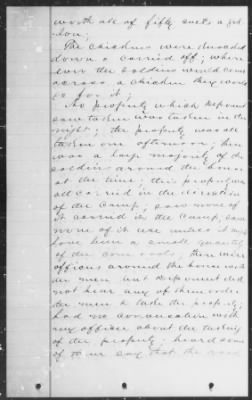 worth all of fifty cents a gal-
lon;
The chickens were knocked
down & carried off; where
ever the soldiers would come
across a chicken they would
go for it;
No property which deponent
saw taken was taken in the
night; the property was all
taken one afternoon; there
was a large majority of the
soldiers around the house
at the time; this property was
all carried in the direction
of the Camp; saw none of
it carried in the Camp, saw
none of it use unless it may
have been a small quantity
of the corn; there were
officers around the house with
the men but deponent did
not hear any of them order
the men to take the property;
had no conversation with
any officer about the taking
of the property; heard some
of them say that the